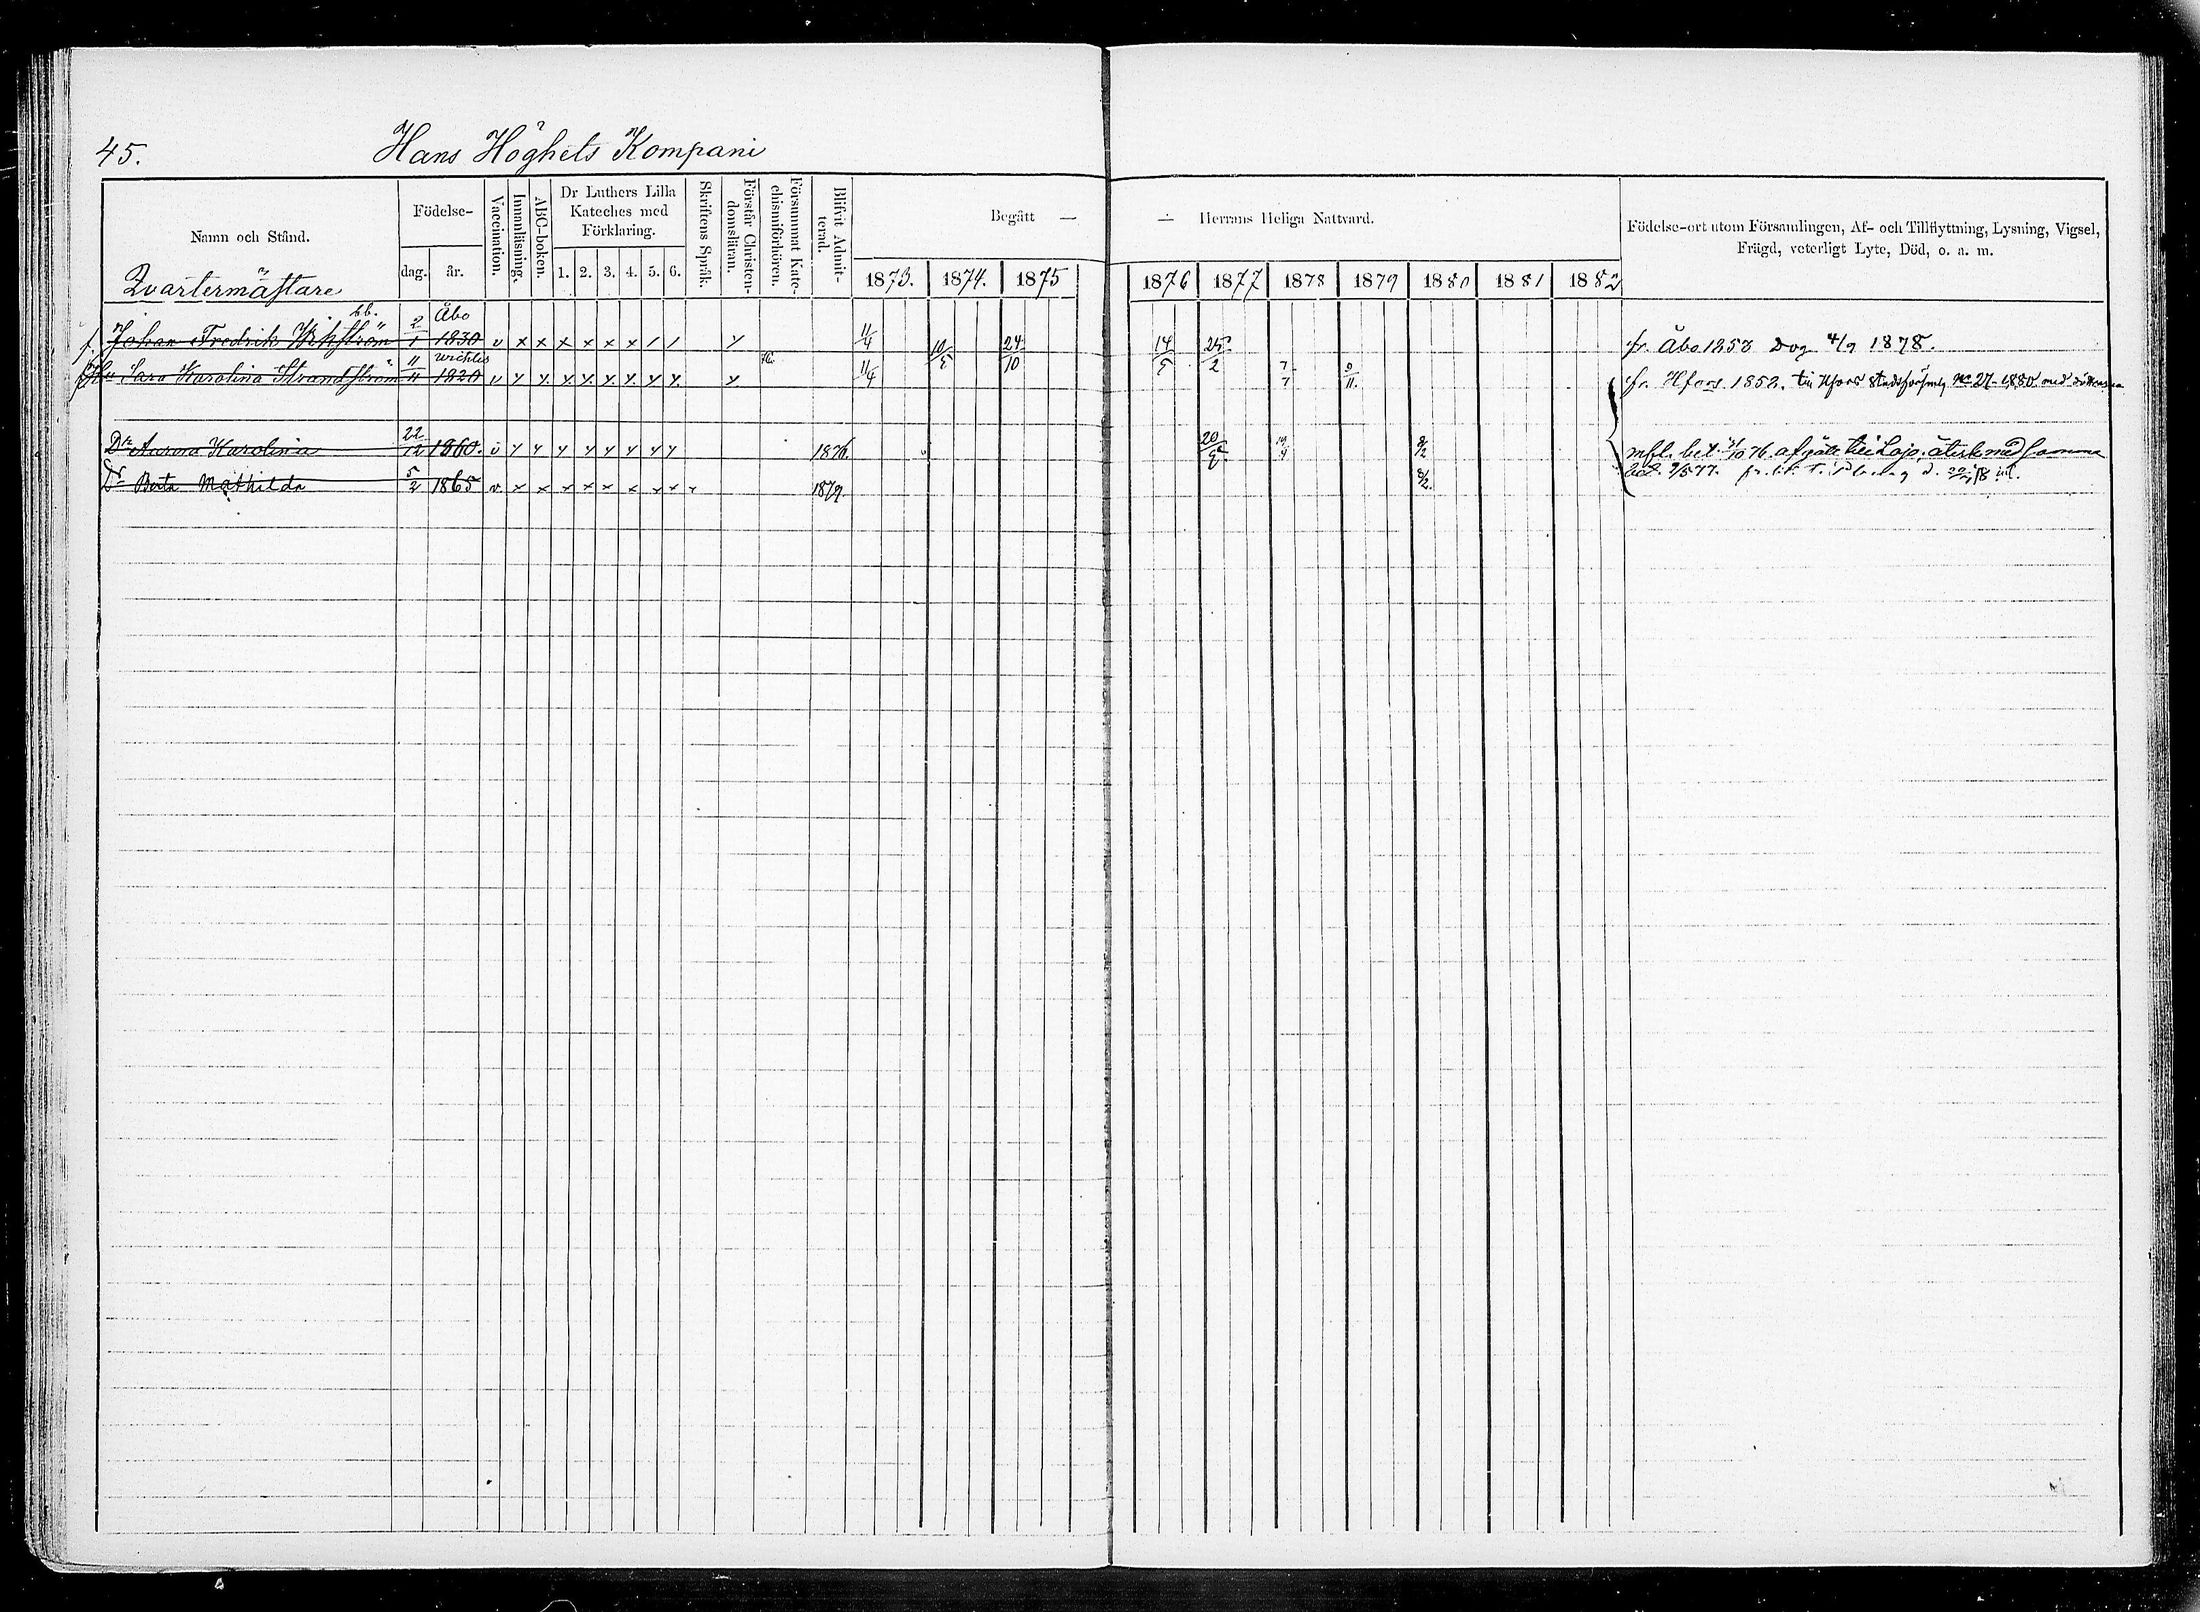 45.
Hans Höghets Kompani
Namn och Stånd.
Födelse-
dag.
år.
Vaccination.
Innanläsning.
ABC-boken.
Dr Luthers Lilla
Kateches med
Förklaring.
1. 2. 3. 4. 5. 6.
Skriftens Språk.
Förstår Christen-
domsläran.
Försummat Kate-
chismiförhören.
Blifvit Admit-
terad.
Begått —
— Herrans Heliga Nattvard.
1873. 1874. 1875
1876 1877 1878 1879 1880 1881 1882
Födelse-ort utom Församlingen, Af- och Tillflyttning, Lysning, Vigsel,
Frägd, veterligt Lyte, Död, o. a. m.
Qvartermästare
Johan Fredrik 2/1 Åbo 1830 v x x x x x x / / y 11/4 10/5 24/10 14/5 25/2 fr. Åbo Dog 4/9 1878.
Hu Sara Karolina Strandström 11/11 Wichtis 1820 v y y y y y y y y y 11/4 7/7 9/11. fr. Hfors 1852. till Hfors Stadsförs. No 27 1880 med
Dr Aurora Karolina 22/12 1860. v y y y y y y y y 1876. 20/5 19/4 8/2
Dr Berta Mathilda 5/2 1865 v x x x x x x x x x 1879 8/2.